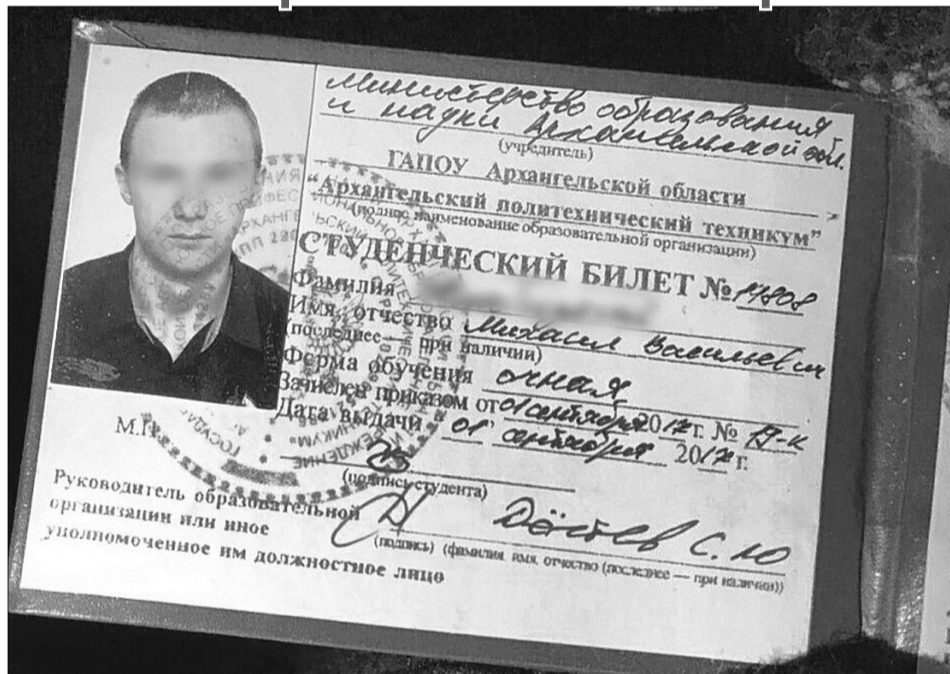 Министерство образования
и науки Архангельской обл.
(учредитель)
ГАПОУ Архангельской области
"Архангельский политехнический техникум"
(полное наименование образовательной организации)
СТУДЕНЧЕСКИЙ БИЛЕТ № 17808
Фамилия
Имя, отчество Михаил Васильевич
(последнее — при наличии)
Форма обучения очная
Зачислен приказом от 01 сентября 2017 г. № 17-к
Дата выдачи 01 сентября 2017 г.
М.П.
(подпись студента)
Руководитель образовательной
организации или иное
уполномоченное им должностное лицо
С.Ю
(подпись) (фамилия, имя, отчество (последнее — при наличии))